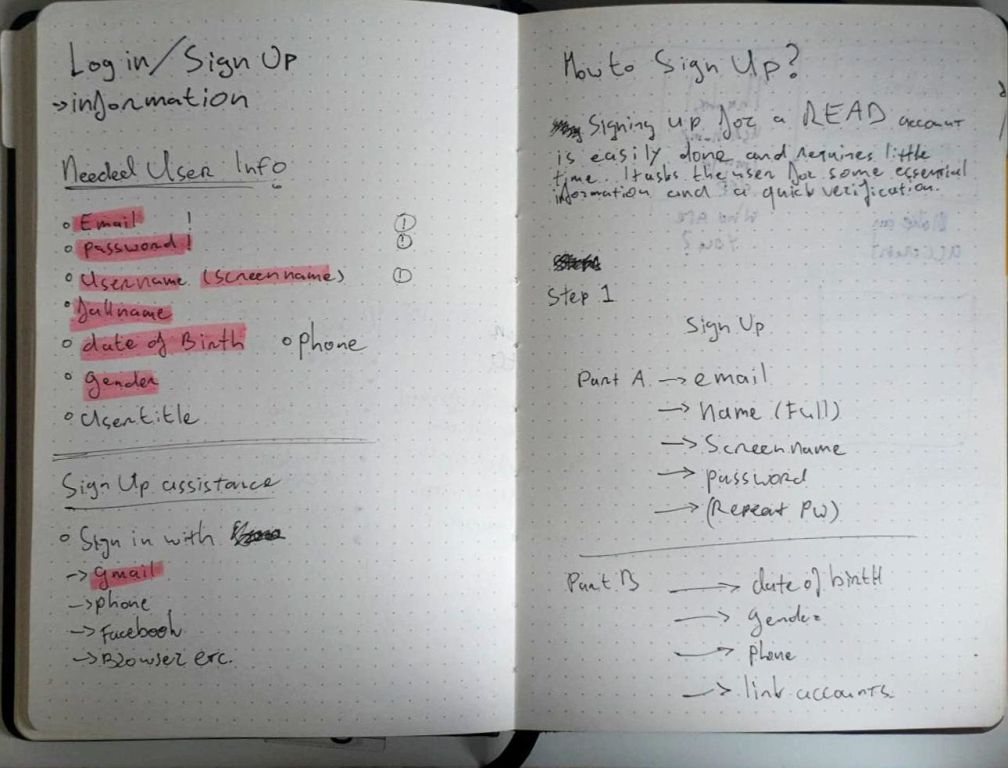 Log in/Sign Up
→ information
Needed User Info
Email !
password !
Username (screenname)
fullname
date of Birth
phone
gender
Usertitle
Sign Up assistance
Sign in with
→ gmail
→ phone
→ Facebook
→ Browser etc.
How to Sign Up?
Signing up for a READ account
is easily done and requires little
time. It asks the user for some essential
information and a quick verification.
Step 1
Sign Up
Part A → email
→ Name (Full)
→ Screenname
→ password
→ (Repeat PW)
Part B → date of birth
→ gender
→ phone
→ link accounts